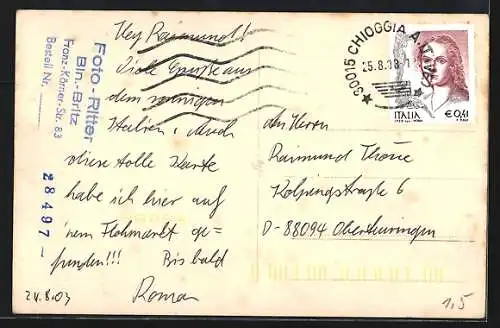 Foto-Ritter
Bln.-Britz
Franz-Körner-Str. 83
Bestell Nr.
28497-
Hey Raimund!
Viele Grüße aus
dem sonnigen
Italien, Auch
diese tolle Karte
habe ich hier auf
nem Flohmarkt ge-
funden!!! Bis bald
Roman
24.8.03
30015 CHIOGGIA A.T. (VE)
25.8.03-1
ITALIA
€0,41
An Herrn
Raimund Thöne
Kolpingstraße 6
D-88094 Oberteuringen
1,5